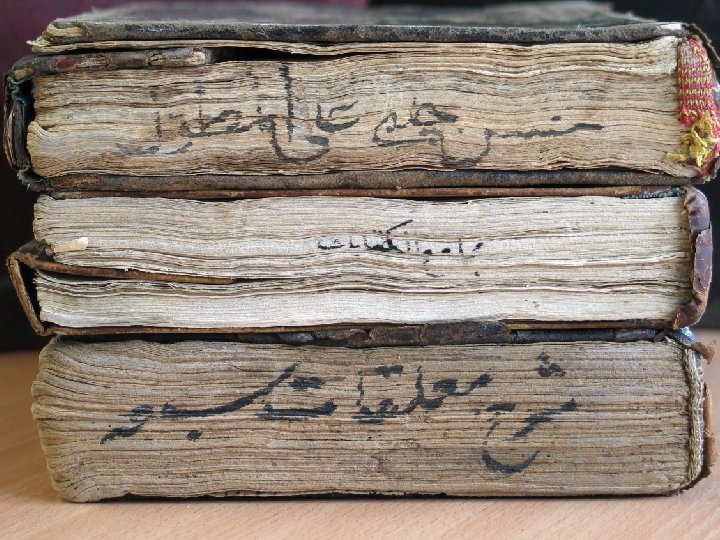 حسن چلبي على المطول
شرح معلقات سبعه